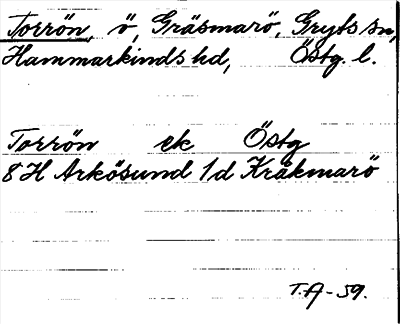 Torrön, ö, Gräsmarö, Gryts sn,
Hammarkinds hd, Östg. l.
Torrön ek Östg
8 H Arkösund 1 d Kråkmarö
T.A-59.